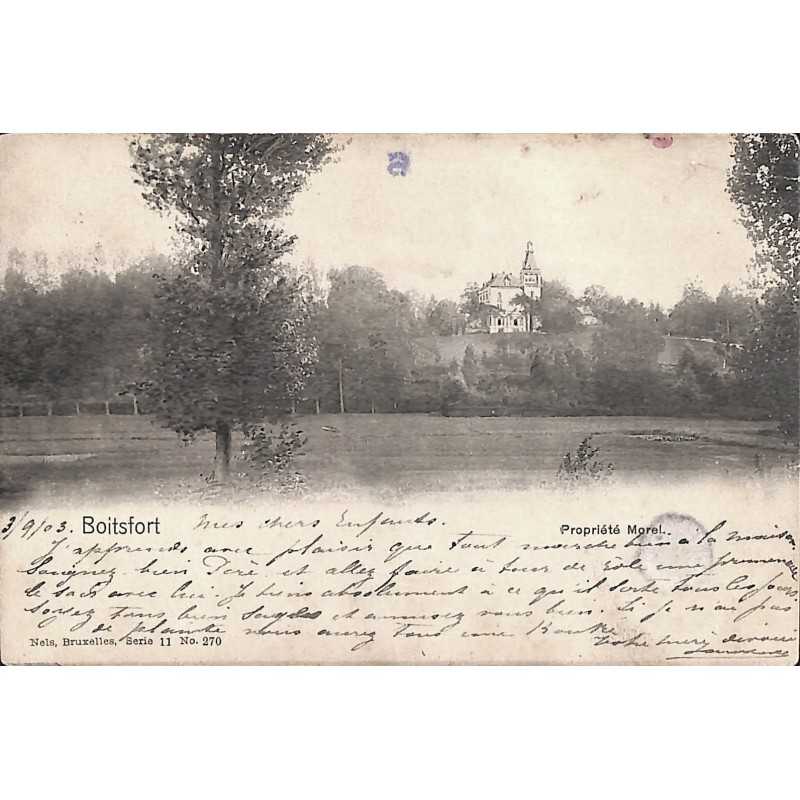 3/9/03. Boitsfort Mes chers Enfants. Propriété Morel.
J'apprends avec plaisir que tout marche bien à la maison
Soignez bien Père et allez faire à tour de rôle une promenade
le soir avec lui. Je tiens absolument à ce qu'il sorte tous les jours
Soyez tous bien sages et amusez vous bien. Si je n'ai pas
de plainte vous aurez tous une
Votre mère dévouée
Nels, Bruxelles, Serie 11 No. 270